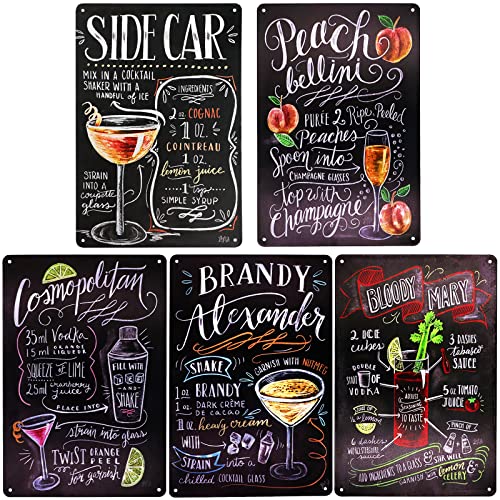 SIDE CAR
MIX IN A COCKTAIL
SHAKER WITH A
HANDFUL OF ICE
STRAIN
INTO A
coupette
glass
INGREDIENTS
2 OZ. COGNAC
1 OZ.
COINTREAU
1 OZ.
lemon juice
1 tsp
SIMPLE SYRUP
Peach
bellini
PURÉE 2 Ripe Peeled
Peaches
Spoon into
CHAMPAGNE GLASSES
top with
Champagne
Cosmopolitan
35ml Vodka
15ml ORANGE
LIQUEUR
SQUEEZE OF LIME
25ml cranberry
juice
PLACE INTO
FILL WITH
ICE
AND
SHAKE
strain into glass
TWIST ORANGE
PEEL
for garnish
BRANDY
Alexander
GARNISH WITH NUTMEG
SHAKE
1 OZ BRANDY
1 OZ DARK CRÈME
DE CACAO
1 OZ heavy cream
WITH
AND
STRAIN into a
chilled COCKTAIL GLASS
BLOODY MARY
2 ICE
cubes
DOUBLE
SHOT OF
VODKA
JUICE OF
1/2 A
LEMON
6 dashes
WORCESTERSHIRE
SAUCE
ADJUST
SEASONING
TO TASTE
3 DASHES
Tabasco
SAUCE
5 OZ TOMATO
JUICE
PINCH OF
ADD INGREDIENTS TO A GLASS & STIR WELL
GARNISH WITH Lemon &
CELERY